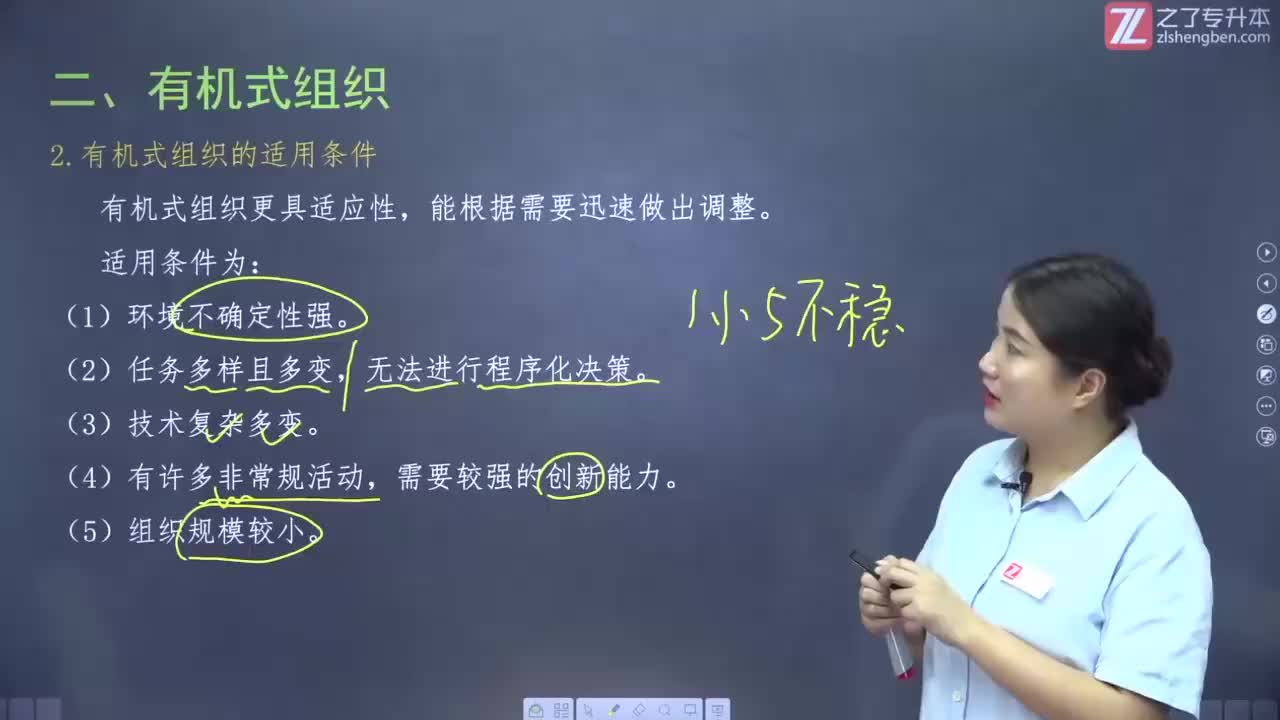 之了专升本
zlshengben.com
二、有机式组织
2.有机式组织的适用条件
有机式组织更具适应性，能根据需要迅速做出调整。
适用条件为：
（1）环境不确定性强。
（2）任务多样且多变，无法进行程序化决策。
（3）技术复杂多变。
（4）有许多非常规活动，需要较强的创新能力。
（5）组织规模较小。
1小5不稳